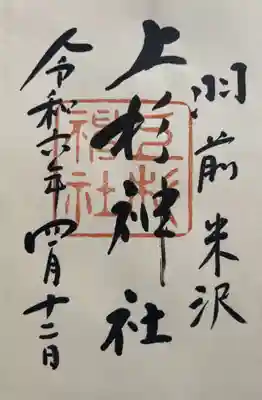 羽前米沢
上杉神社
上杉神社
令和六年四月十二日